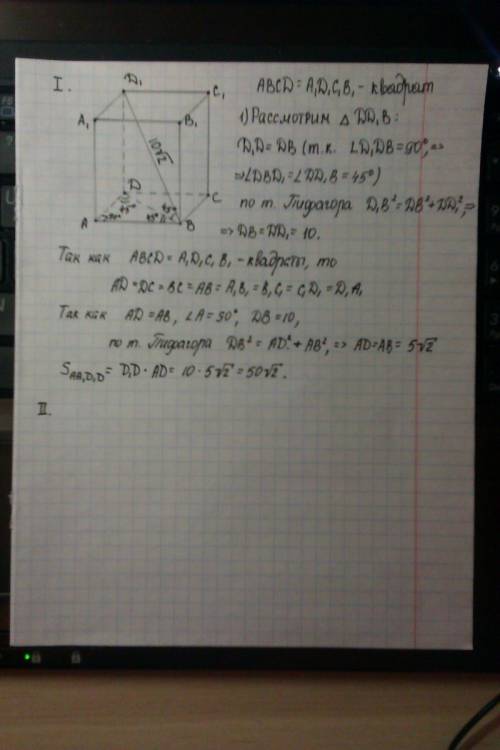 I.
ABCD = A₁D₁C₁B₁ - квадрат
1) Рассмотрим △ DD₁B:
D₁D = DB (т.к. ∠D₁DB = 90°, ⇒
⇒ ∠DBD₁ = ∠DD₁B = 45°)
по т. Пифагора D₁B² = DB² + DD₁², ⇒
⇒ DB = DD₁ = 10.
D₁
C₁
A₁
B₁
10√2
D
C
A
B
45°
45°
45°
Так как ABCD = A₁D₁C₁B₁ - квадраты, то
AD = DC = BC = AB = A₁B₁ = B₁C₁ = C₁D₁ = D₁A₁
Так как AD = AB, ∠A = 90°, DB = 10,
по т. Пифагора DB² = AD² + AB², ⇒ AD = AB = 5√2
S AA₁D₁D = D₁D · AD = 10 · 5√2 = 50√2.
II.